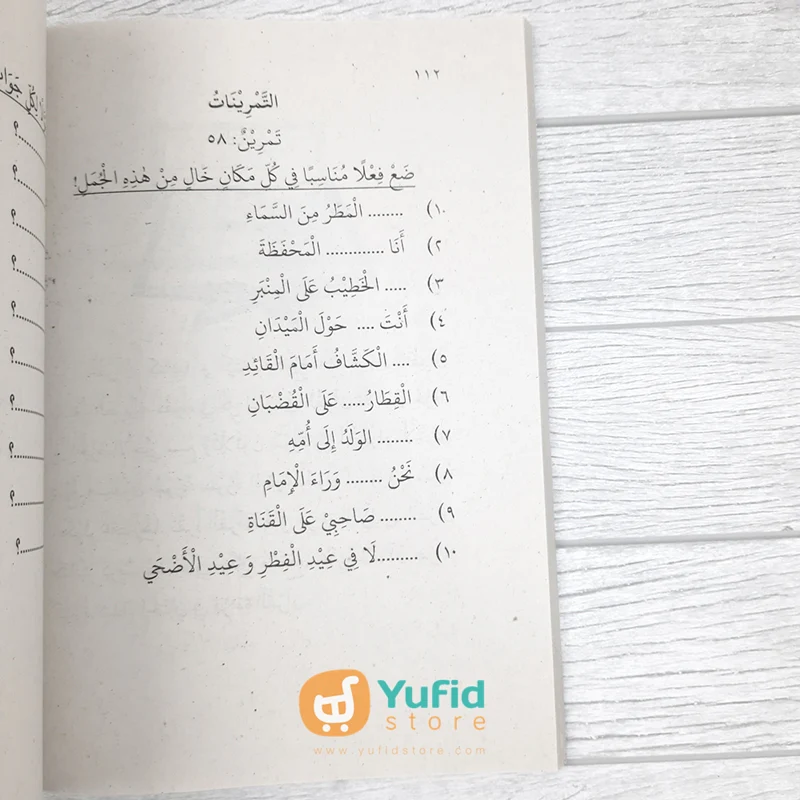 ١١٢
التَّمْرِيْنَاتُ
تَمْرِيْنٌ: ٥٨
ضَعْ فِعْلًا مُنَاسِبًا فِي كُلِّ مَكَانٍ خَالٍ مِنْ هٰذِهِ الْجُمَلِ!
١٠) ........ الْمَطَرُ مِنَ السَّمَاءِ
٢) أَنَا ............. الْمَحْفَظَةَ
٣) ..... الْخَطِيْبُ عَلَى الْمِنْبَرِ
٤) أَنْتَ .... حَوْلَ الْمَيْدَانِ
٥) .... الْكَشَّافُ أَمَامَ الْقَائِدِ
٦) الْقِطَارُ..... عَلَى الْقُضْبَانِ
٧) ........ الوَلَدُ إِلَى أُمِّهِ
٨) نَحْنُ ........ وَرَاءَ الْإِمَامِ
٩) ........ صَاحِبِيْ عَلَى الْقَنَاةِ
١٠) .........لَا فِي عِيْدِ الْفِطْرِ وَ عِيْدِ الْأَضْحَي
Yufid
store
www.yufidstore.com